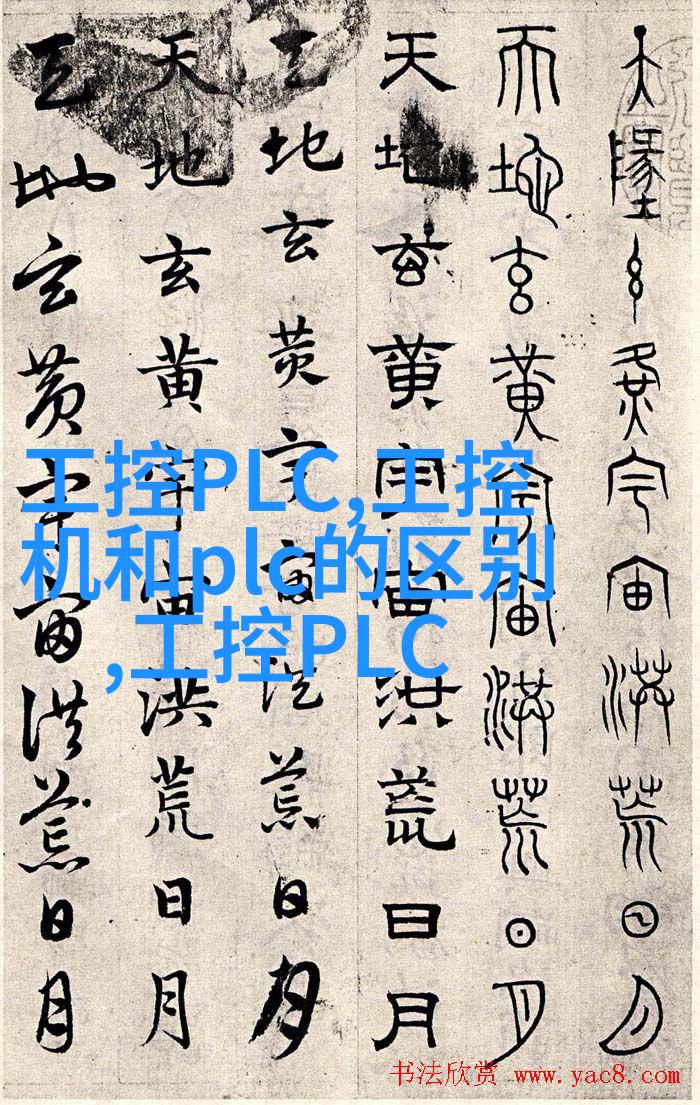 天墬玄黃宇宙洪荒日月
天地玄黃宇宙洪荒日月
天地玄黃宇宙洪荒日月
天地玄黃宇宙洪荒日月
天地玄黃宇宙洪荒日月
天地玄黃宇宙洪荒日月
工控PLC,工控
机和plc的区别
,工控PLC
书法欣赏 www.yac8.com